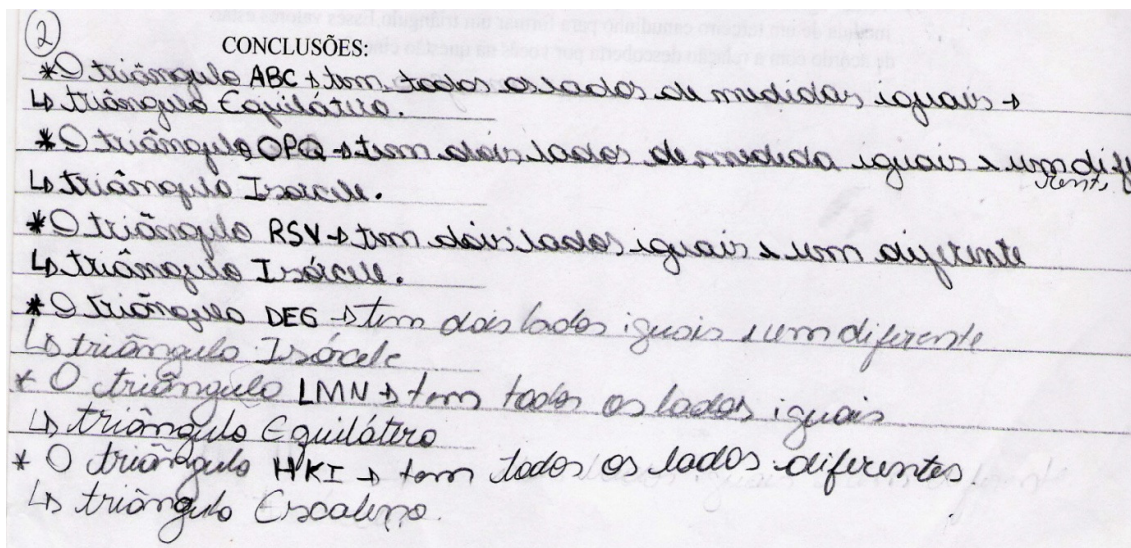 2
CONCLUSÕES:
* O triângulo ABC → tem todos os lados de medidas iguais →
↳ triângulo Equilátero.
* O triângulo OPQ → tem dois lados de medida iguais e um diferente,
↳ triângulo Isórcele.
* O triângulo RSV → tem dois lados iguais e um diferente
↳ triângulo Isórcele.
* O triângulo DEG → tem dois lados iguais e um diferente
↳ triângulo Isórcele
* O triângulo LMN → tem todos os lados iguais
↳ triângulo Equilátero
* O triângulo HKI → tem todos os lados diferentes
↳ triângulo Escaleno.